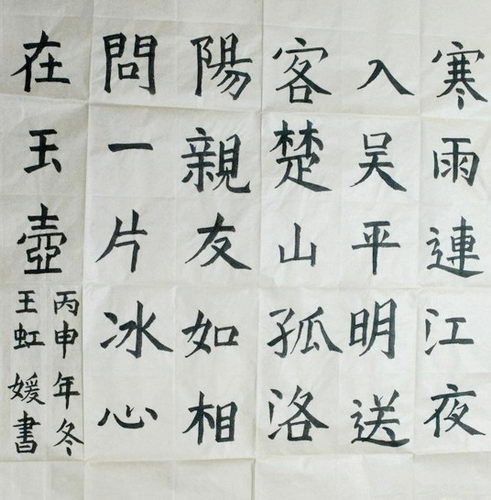 寒雨連江夜
入吳平明送
客楚山孤洛
陽親友如相
問一片冰心
在玉壺
丙申年冬
王虹媛書